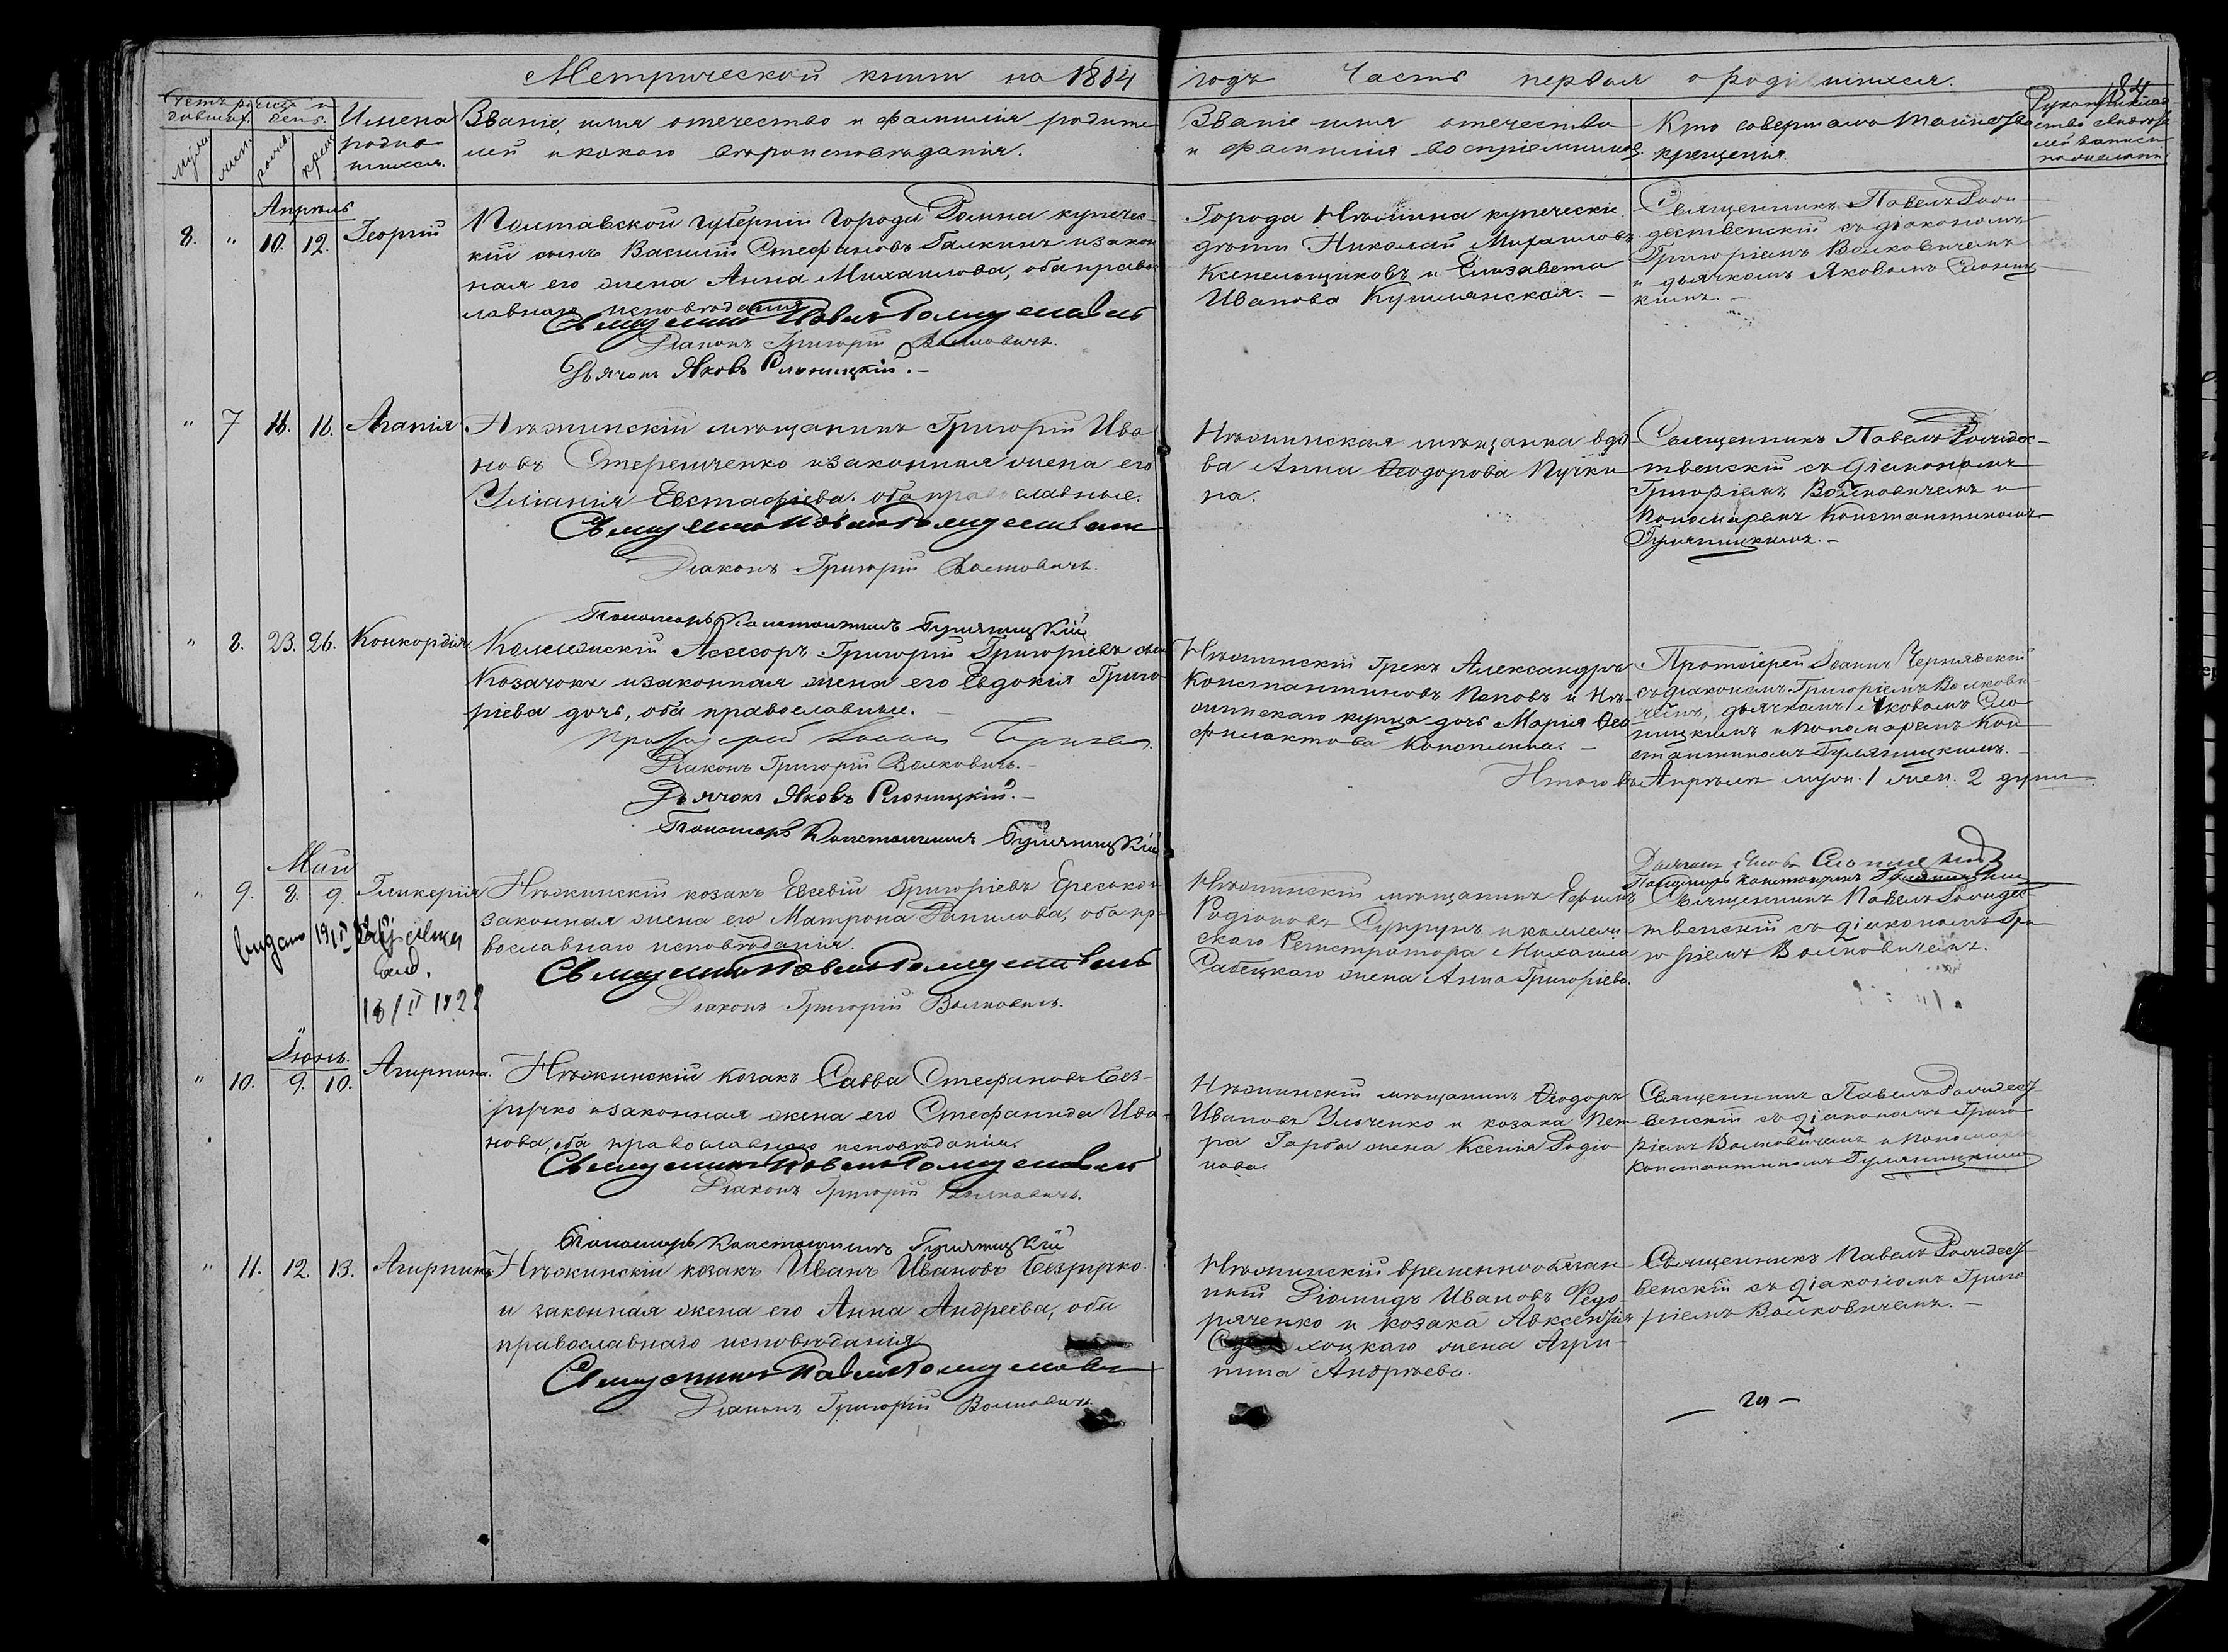 Метрической книги на 1864 годъ Часть первая о родившихся.
184
Счетъ родившихся
мѣсяцъ и день.
муж.
жен.
рожд.
крещ.
Имена
родив
шихся.
Званіе, имя отечество и фамилія родите
лей и какого вѣроисповѣданія.
Званіе имя отечество
и фамилія воспріемниковъ.
Кто совершалъ таинство
крещенія.
Рукоприклад
ство свидѣтелей
записи
по желанію
Апрѣль
8. " 10. 12. Георгій
Полтавской губерніи города Ромна купечес-
кій сынъ Василій Стефановъ Галкинъ и закон
ная его жена Анна Михаилова, оба право
славнаго исповѣданія
Священникъ Павелъ Рождественскій
Діаконъ Григорій Волковичъ.
Дьячокъ Яковъ Слоницкій.
Города Нѣжина купеческіе
дѣти Николай Михаиловъ
и Елизавета
Иванова
Священникъ Павелъ Рож
дественскій съ діакономъ
Григоріемъ Волковичемъ
и дьячкомъ Яковомъ Слониц
кимъ.
" 7 11. 16. Агапія
Нѣжинскій мѣщанинъ Григорій Ива
новъ и законная жена его
Евстафіева. оба православные.
Священникъ Павелъ Рождественскій
Діаконъ Григорій Волковичъ.
Пономарь Константинъ Гулятицкій
Нѣжинская мѣщанка вдо
ва Анна Ѳеодорова Пучки
на.
Священникъ Павелъ Рождес-
твенскій съ діакономъ
Григоріемъ Волковичемъ и
Пономаремъ Константиномъ
Гуляницкимъ.
" 8. 23. 26. Конкордія
Коллежскій Ассесоръ Григорій Григорьевъ сынъ
Козачокъ и законная жена его Евдокія Григо
ріева дочь, оба православные.
Протоіерей Іоаннъ
Діаконъ Григорій Волковичъ.
Дьячокъ Яковъ Слоницкій.
Пономарь Константинъ Гуляницкій
Нѣжинскій Грекъ Александръ
Константиновъ Поповъ и Нѣ-
жинскаго купца дочь Марія Ѳео
филактова
Протоіерей Іоаннъ Чернявскій
съ діакономъ Григоріемъ Волкови-
чемъ, дьячкомъ Яковомъ Сло
ницкимъ и пономаремъ Кон
стантиномъ Гуляницкимъ.
Итого въ Апрѣлѣ муж. 1 жен. 2 души
Дьячокъ Яковъ Слоницкій
Пономарь Константинъ Гуляницкій
Май
" 9. 8. 9. Гликерія
18/II 1922
Нѣжинскій козакъ Евсевій Григорьевъ и
законная жена его Матрона Данилова, оба пра
вославнаго исповѣданія.
Священникъ Павелъ Рождественскій
Діаконъ Григорій Волковичъ.
Нѣжинскій мѣщанинъ
Родіоновъ Супрунъ и коллеж
скаго Регистратора Михаила
жена Анна Григорьева.
Священникъ Павелъ Рождес-
твенскій съ діакономъ Гри
горіемъ Волковичемъ.
Іюнь.
" 10. 9. 10. Агрипина.
Нѣжинскій козакъ Савва Стефановъ Без-
ручко и законная жена его Стефанида Ива
нова, оба православнаго исповѣданія.
Священникъ Павелъ Рождественскій
Діаконъ Григорій Волковичъ.
Пономарь Константинъ Гуляницкій
Нѣжинскій мѣщанинъ Ѳеодоръ
Ивановъ и козака Пет
ра Гарба жена Ксенія Родіо
нова.
Священникъ Павелъ Рождест
венскій съ діакономъ Григо
ріемъ Волковичемъ и пономаремъ
Константиномъ Гуляницкимъ
" 11. 12. 13. Агрипина
Нѣжинскій козакъ Иванъ Ивановъ Безручко
и законная жена его Анна Андреева, оба
православнаго исповѣданія
Священникъ Павелъ Рождественскій
Діаконъ Григорій Волковичъ
Нѣжинскій временнообязан
ный Діомидъ Ивановъ Федо-
ряченко и козака Авксентія
жена Агри-
пина Андреева.
Священникъ Павелъ Рождест
венскій съ діакономъ Григо
ріемъ Волковичемъ.